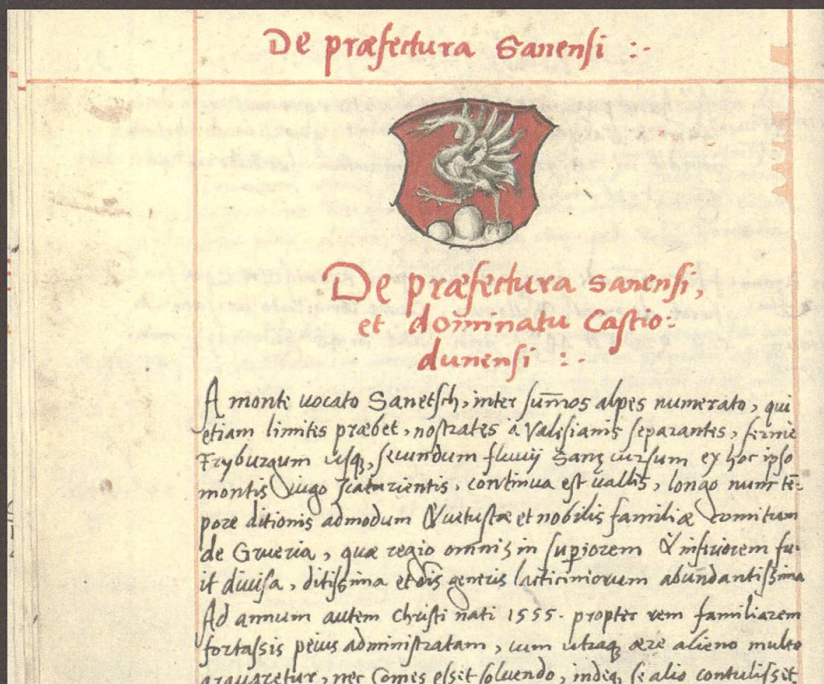 De præfectura Sanensi :-
De præfectura Sanensi,
et dominatu Castio:
dunensi :-
A monte uocato Sanetsch, inter sum̄os alpes numerato, qui
etiam limites præbet, nostrates à Valesianis separantes, ferme
Fryburgum usq, secundum fluuij Sanę cursum ex hoc ipso
montis iugo scaturientis, continua est uallis, longo nunc tē-
pore ditionis admodum & uetustæ et nobilis familiæ comitum
de Grueria, quæ regio omnis in supiorem & inferiorem fu-
it diuisa, ditissima et oīs generis lacticiniorum abundantissima
Ad annum autem Christi nati 1555. propter rem familiarem
fortassis peius administratam, cum utraq ære alieno multo
grauaretur, nec Comes esset soluendo, indeq se alio contulisset